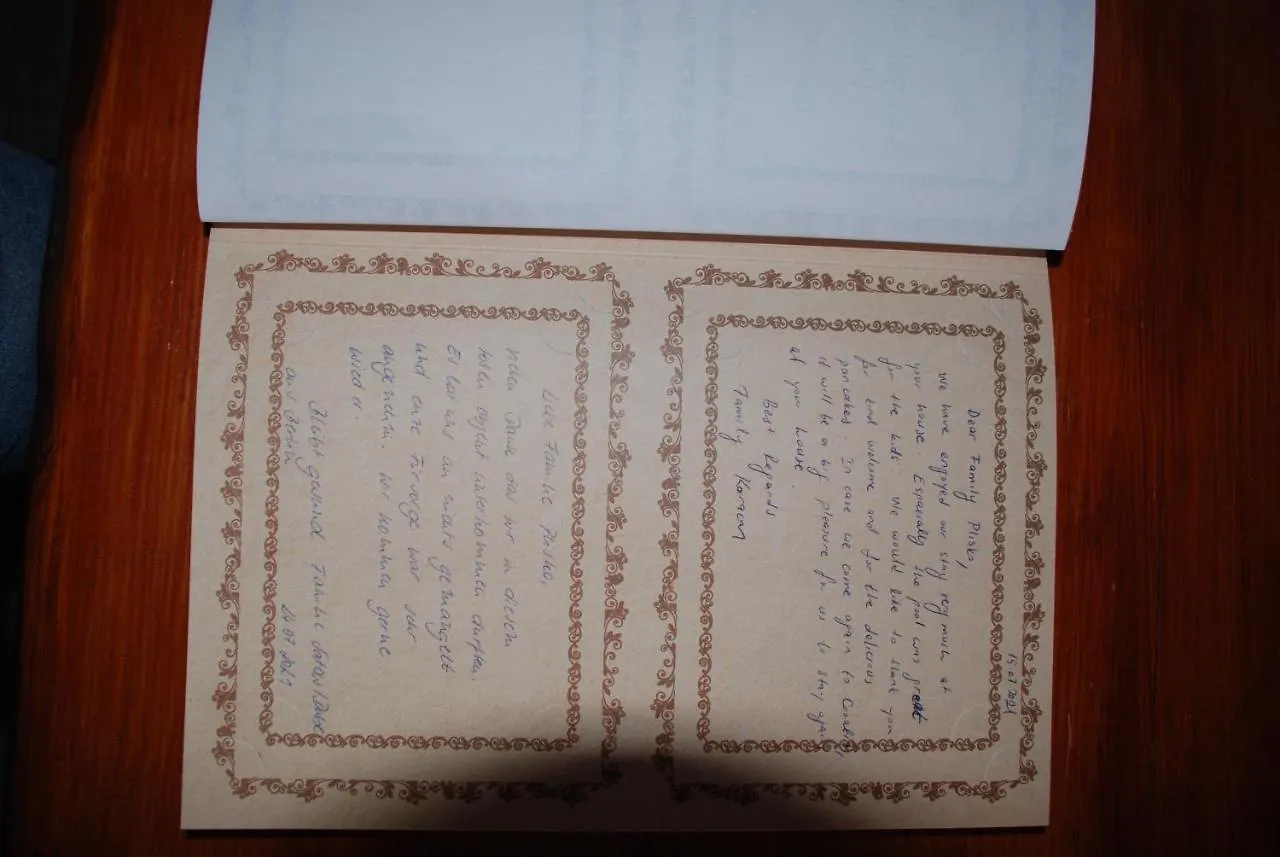 15.07.2021
Dear Family Plisko,
We have enjoyed our stay very much at
your house. Espacially the pool was great
for the kids. We would like to thank you
for and welcome and for the delicious
pancakes. In case we come again to
it will be a big pleasure for us to stay again
at your house.
Best Regards
Family
Liebe Familie Plisko,
vielen Dank das wir in diesem
tollen objekt unterkommen durften.
Es hat uns an nichts gemangelt
und eure Fürsorge war sehr
angenehm. Wir kommen gerne
wieder.
Bleibt gesund. Familie
aus
24.07.2021